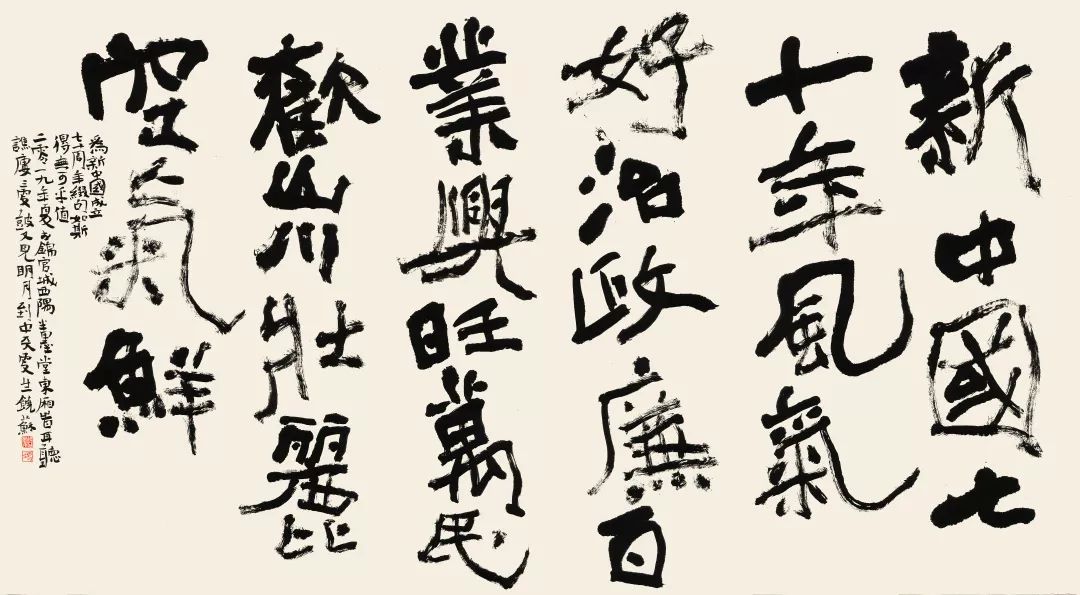 新中國七
十年風氣
好治政廉百
業興旺萬民
歡山川壯麗
空氣鮮
為新中國成立
七十周年綴句如斯
得無可乎值
二零一九年夏於錦官城西隅 堂東廂 耳聽
譙樓三更鼓又見明月到中天